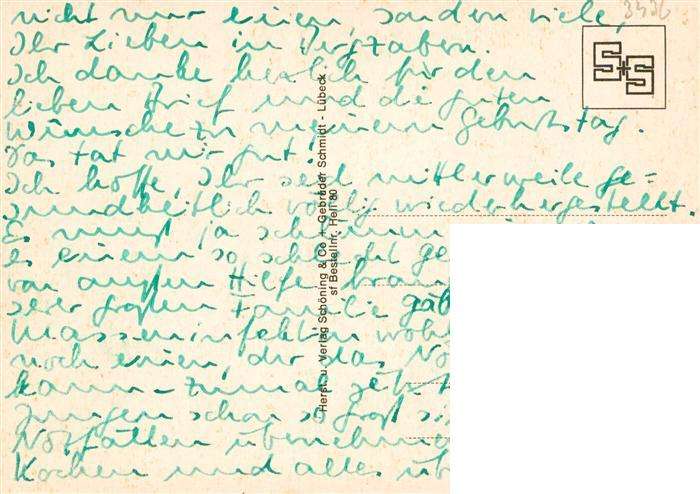 nicht nur einen, sondern viele,
Ihr Lieben in Bergzabern.
Ich danke herzlich für den
lieben Brief und die guten
Wünsche zu meinem Geburtstag.
Das tat mir gut!
Ich hoffe, Ihr seid mittlerweile ge=
sundheitlich völlig wiederhergestellt.
Es muß ja schlimm
es einem so schlecht ge
von außen Hilfe brau
serer großen Familie gäb
Masseninfektion wohl
noch einen, der das No
kann - zumal jetzt
Jungen schon so groß si
Notfällen übernehm
Kochen und alles üb
3436
S+S
Herst. u. Verlag Schöning & Co + Gebrüder Schmidt - Lübeck
sf Bestellnr. Hell 80